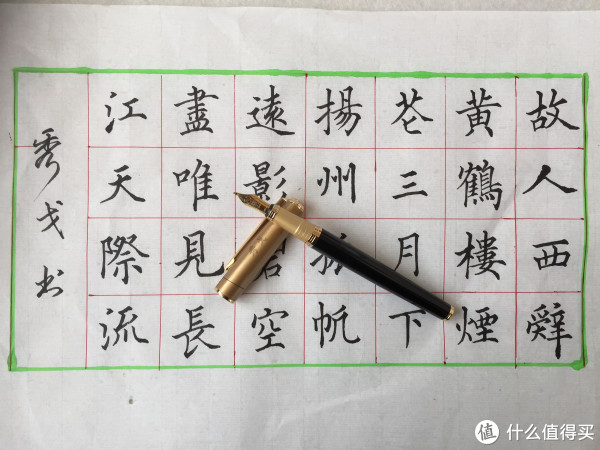 故人西辭
黄鶴樓煙
花三月下
揚州孤帆
遠影碧空
盡唯見長
江天際流
秀戈书
值 什么值得买